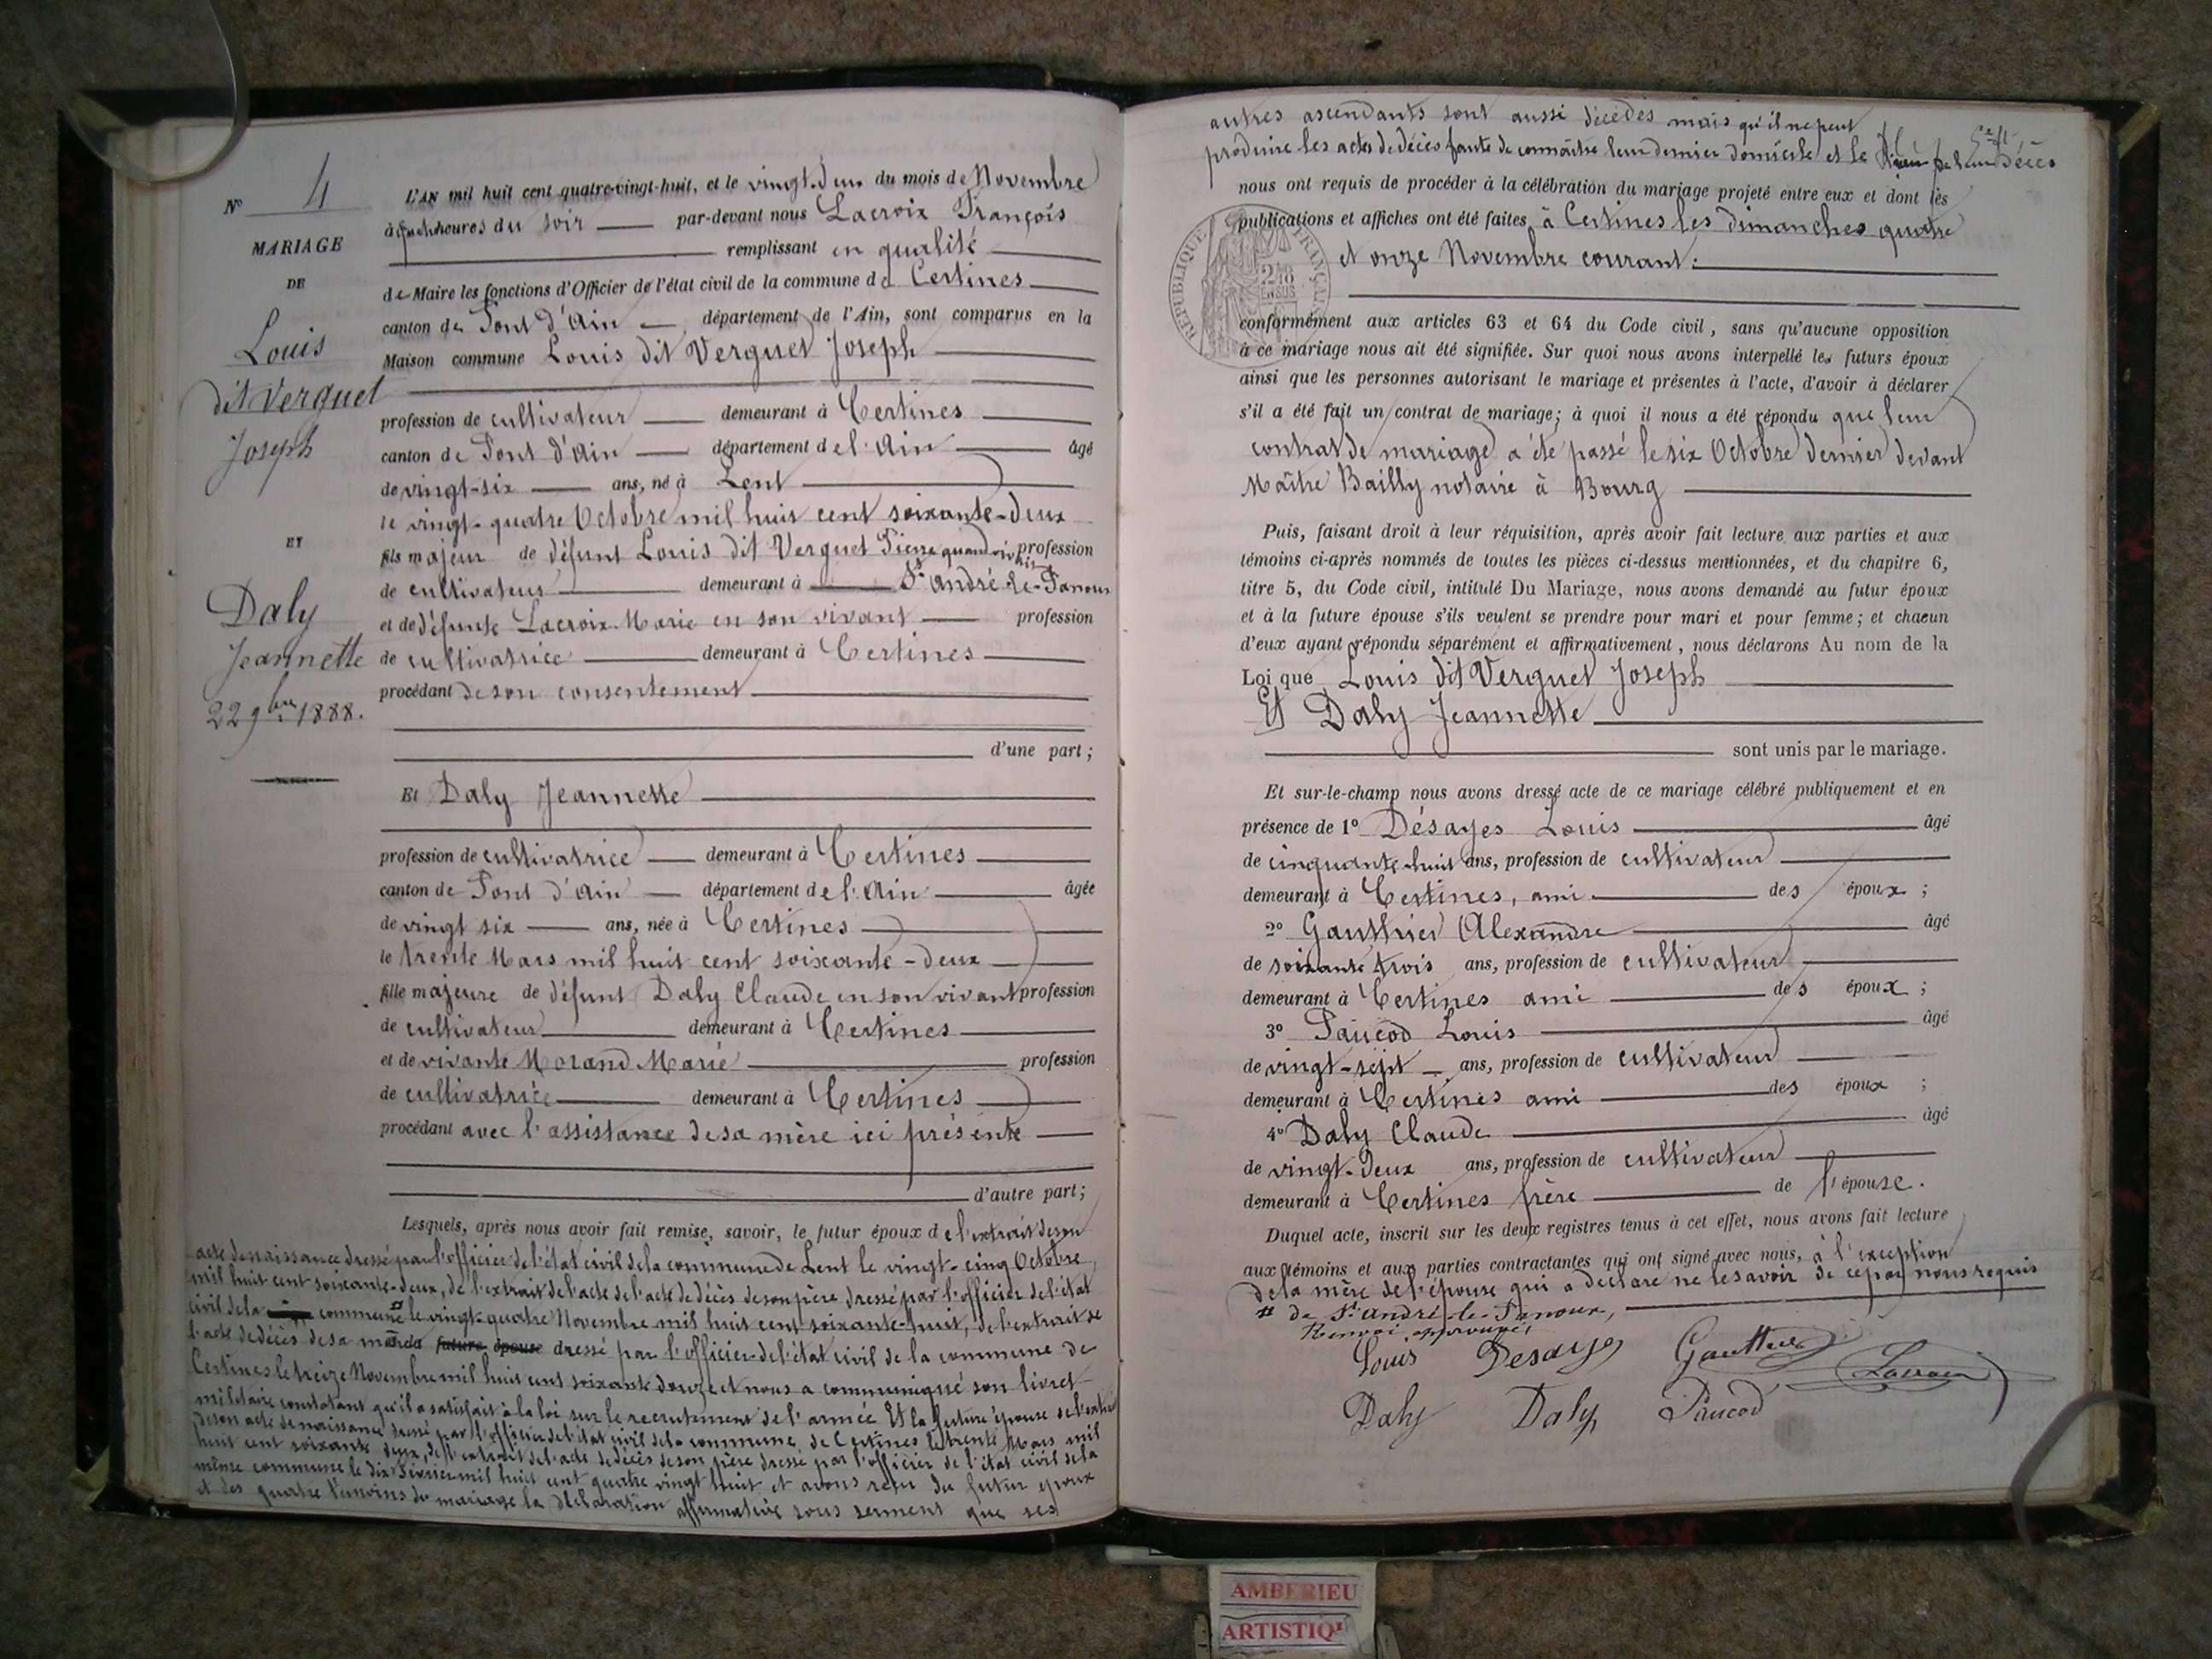 N° 4
MARIAGE
DE
Louis
dit Verguet
Joseph
ET
Daly
Jeannette
22 9bre 1888.
L'AN mil huit cent quatre-vingt-huit, et le vingt-deux du mois de Novembre
à quatre heures du soir par-devant nous Lacroix François
remplissant en qualité
de Maire les fonctions d'Officier de l'état civil de la commune de Certines
canton de Pont d'Ain département de l'Ain, sont comparus en la
Maison commune Louis dit Verguet Joseph
profession de cultivateur demeurant à Certines
canton de Pont d'Ain département de l'Ain âgé
de vingt-six ans, né à Lent
le vingt-quatre Octobre mil huit cent soixante-deux
fils majeur de défunt Louis dit Verguet Pierre quand vivait profession
de cultivateur demeurant à St André-le-Panoux
et de défunte Lacroix Marie en son vivant profession
de cultivatrice demeurant à Certines
procédant de son consentement
d'une part;
Et Daly Jeannette
profession de cultivatrice demeurant à Certines
canton de Pont d'Ain département de l'Ain âgée
de vingt six ans, née à Certines
le trente Mars mil huit cent soixante-deux
fille majeure de défunt Daly Claude en son vivant profession
de cultivateur demeurant à Certines
et de vivante Morand Marie profession
de cultivatrice demeurant à Certines
procédant avec l'assistance de sa mère ici présente
d'autre part;
Lesquels, après nous avoir fait remise, savoir, le futur époux de l'extrait de son
acte de naissance dressé par l'officier de l'état civil de la commune de Lent le vingt-cinq Octobre
mil huit cent soixante-deux, de l'extrait de l'acte de l'acte de décès de son père dressé par l'officier de l'état
civil de la commune # le vingt-quatre Novembre mil huit cent soixante-huit, de l'extrait de
l'acte de décès de sa mère de la future épouse dressé par l'officier de l'état civil de la commune de
Certines le treize Novembre mil huit cent soixante douze et nous a communiqué son livret
militaire constatant qu'il a satisfait à la loi sur le recrutement de l'armée Et la future épouse de l'extrait
de son acte de naissance dressé par l'officier de l'état civil de la commune de Certines le trente Mars mil
huit cent soixante deux, de l'extrait de l'acte de décès de son père dressé par l'officier de l'état civil de la
même commune le dix Février mil huit cent quatre vingt huit et avons reçu du futur époux
et des quatre témoins du mariage la déclaration affirmative sous serment que ses
autres ascendants sont aussi décédés mais qu'il ne peut
produire les actes de décès faute de connaître leur dernier domicile et le lieu de leur décès
nous ont requis de procéder à la célébration du mariage projeté entre eux et dont les
publications et affiches ont été faites à Certines les dimanches quatre
et onze Novembre courant.
RÉPUBLIQUE FRANÇAISE
conformément aux articles 63 et 64 du Code civil, sans qu'aucune opposition
à ce mariage nous ait été signifiée. Sur quoi nous avons interpellé les futurs époux
ainsi que les personnes autorisant le mariage et présentes à l'acte, d'avoir à déclarer
s'il a été fait un contrat de mariage; à quoi il nous a été répondu que leur
contrat de mariage a été passé le six Octobre dernier devant
Maître Bailly notaire à Bourg
Puis, faisant droit à leur réquisition, après avoir fait lecture aux parties et aux
témoins ci-après nommés de toutes les pièces ci-dessus mentionnées, et du chapitre 6,
titre 5, du Code civil, intitulé Du Mariage, nous avons demandé au futur époux
et à la future épouse s'ils veulent se prendre pour mari et pour femme; et chacun
d'eux ayant répondu séparément et affirmativement, nous déclarons Au nom de la
Loi que Louis dit Verguet Joseph
Et Daly Jeannette
sont unis par le mariage.
Et sur-le-champ nous avons dressé acte de ce mariage célébré publiquement et en
présence de 1° Désayes Louis âgé
de cinquante-huit ans, profession de cultivateur
demeurant à Certines, ami des époux;
2° Gauthier Alexandre âgé
de soixante trois ans, profession de cultivateur
demeurant à Certines ami des époux;
3° Paucod Louis âgé
de vingt-sept ans, profession de cultivateur
demeurant à Certines ami des époux;
4° Daly Claude âgé
de vingt-deux ans, profession de cultivateur
demeurant à Certines frère de l'épouse.
Duquel acte, inscrit sur les deux registres tenus à cet effet, nous avons fait lecture
aux témoins et aux parties contractantes qui ont signé avec nous, à l'exception
de la mère de l'épouse qui a déclaré ne le savoir de ce par nous requis
# de St André-le-Panoux,
Renvoi approuvé,
Louis Desaye Gauthier Lacroix
Daly Daly Paucod
AMBERIEU
ARTISTIQ